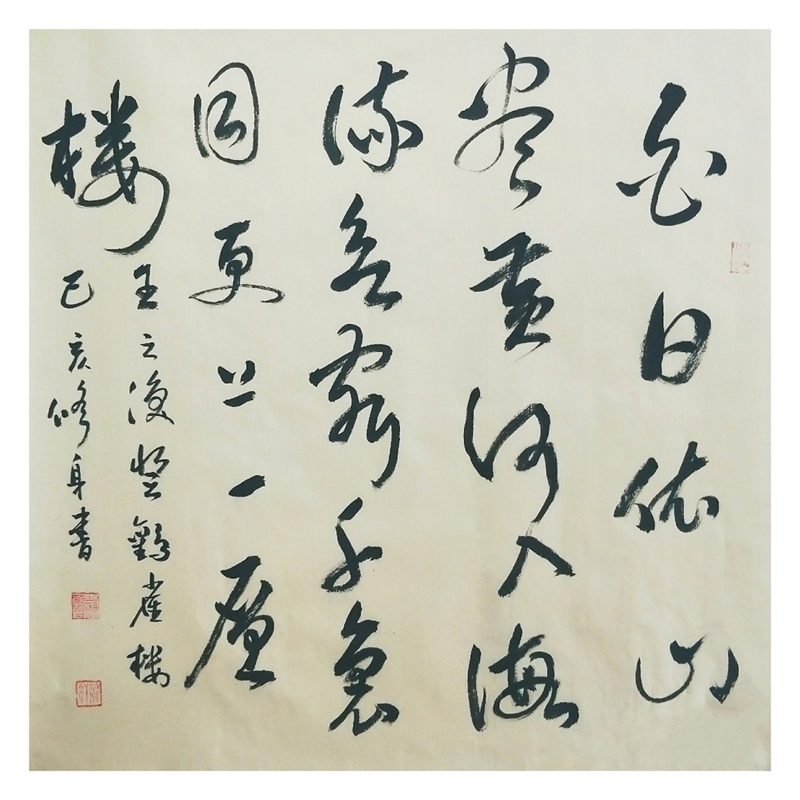 白日依山
尽黄河入海
流欲窮千裏
目更上一层
楼
王之涣登鹳雀楼
己亥修身書